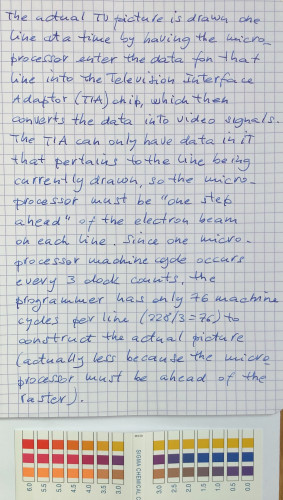 The actual TV picture is drawn one
line at a time by having the micro-
processor enter the data for that
line into the Television Interface
Adaptor (TIA) chip, which then
converts the data into video signals.
The TIA can only have data in it
that pertains to the line being
currently drawn, so the micro-
processor must be "one step
ahead" of the electron beam
on each line. Since one micro-
processor machine cycle occurs
every 3 clock counts, the
programmer has only 76 machine
cycles per line (228/3=76) to
construct the actual picture
(actually less because the micro-
processor must be ahead of the
raster).
6.0 5.5 5.0 4.5 4.0 3.5 3.0
SIGMA CHEMICAL C
3.0 2.5 2.0 1.5 1.0 0.5 0.0